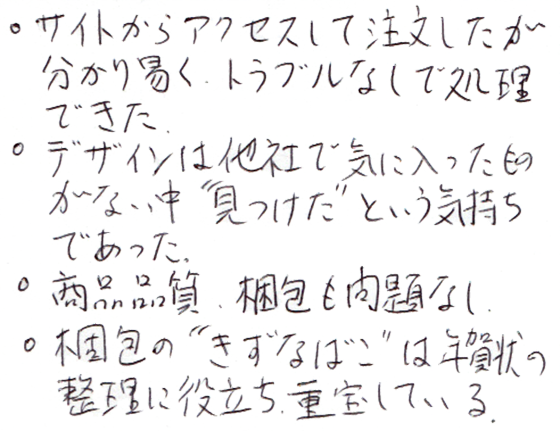 。サイトからアクセスして注文したが
分かり易く、トラブルなしで処理
できた.
。デザインは他社で気に入ったもの
がない中“見つけた”という気持ち
であった.
。商品品質、梱包も問題なし.
。梱包の“きずなばこ”は年賀状の
整理に役立ち、重宝している.